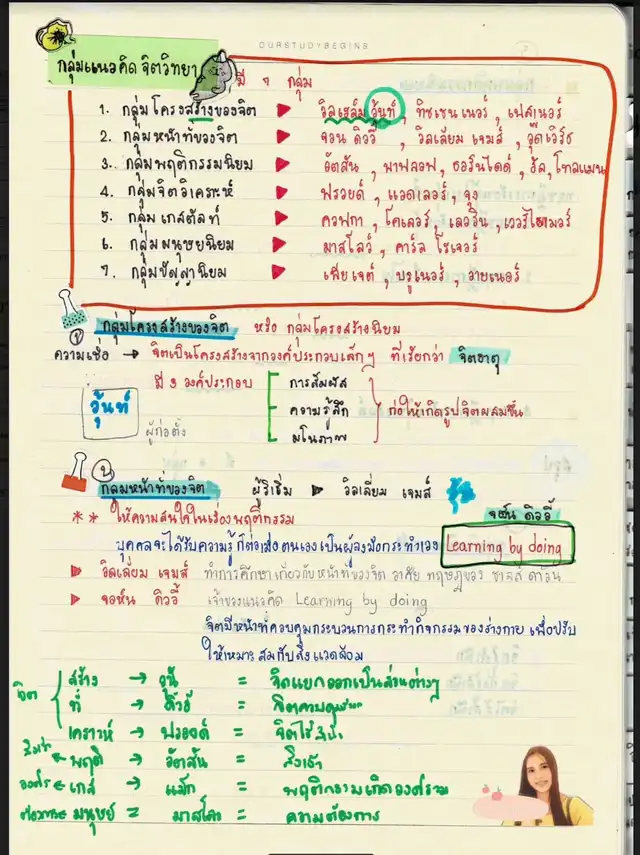 OURSTUDYBEGINS
กลุ่มแนวคิดจิตวิทยา
มี 7 กลุ่ม
1. กลุ่มโครงสร้างของจิต ▶ วิลเฮล์ม วุ้นท์, ทิชเชนเนอร์, เฟสเนอร์
2. กลุ่มหน้าที่ของจิต ▶ จอน ดิวอี้, วิลเลียม เจมส์, วู๊ดเวิร์ธ
3. กลุ่มพฤติกรรมนิยม ▶ วัตสัน, พาฟลอฟ, ธอร์นไดด์, ฮัล, โทลแมน
4. กลุ่มจิตวิเคราะห์ ▶ ฟรอยด์, แอดเลอร์, จุง
5. กลุ่มเกสตัลท์ ▶ คอฟกา, โคเลอร์, เลอวิน, เวอร์ไทเมอร์
6. กลุ่มมนุษยนิยม ▶ มาสโลว์, คาร์ล โรเจอร์
7. กลุ่มปัญญานิยม ▶ เพียเจต์, บรูเนอร์, วายเนอร์
① กลุ่มโครงสร้างของจิต หรือ กลุ่มโครงสร้างนิยม
ความเชื่อ → จิตเป็นโครงสร้างจากองค์ประกอบเล็กๆ ที่เรียกว่า จิตธาตุ
มี 3 องค์ประกอบ
การสัมผัส
ความรู้สึก
มโนภาพ
ก่อให้เกิดรูปจิตผสมขึ้น
วุ้นท์
ผู้ก่อตั้ง
② กลุ่มหน้าที่ของจิต ผู้ริเริ่ม ▶ วิลเลี่ยม เจมส์
จอห์น ดิวอี้
** ให้ความสนใจในเรื่องพฤติกรรม
บุคคลจะได้รับความรู้ ก็ต่อเมื่อตนเองเป็นผู้ลงมือกระทำเอง Learning by doing
▶ วิลเลี่ยม เจมส์ ทำการศึกษาเกี่ยวกับหน้าที่ของจิต อาศัย ทฤษฎีของ ชาลส์ ดาวิน
▶ จอห์น ดิวอี้ เจ้าของแนวคิด Learning by doing
จิตมีหน้าที่ควบคุมกระบวนการกระทำกิจกรรมของร่างกาย เพื่อปรับ
ให้เหมาะสมกับสิ่งแวดล้อม
จิต
สร้าง → วุ้น = จิตแยกออกเป็นส่วนต่างๆ
ที่ → ดิวอี้ = จิตควบคุม
เคราะห์ → ฟรอยด์ = จิตไร้สำนึก
พฤติ → วัตสัน = สิ่งเร้า
เกส → แม็ก = พฤติกรรมเกิดองค์รวม
มนุษย์ = มาสโลว = ความต้องการ